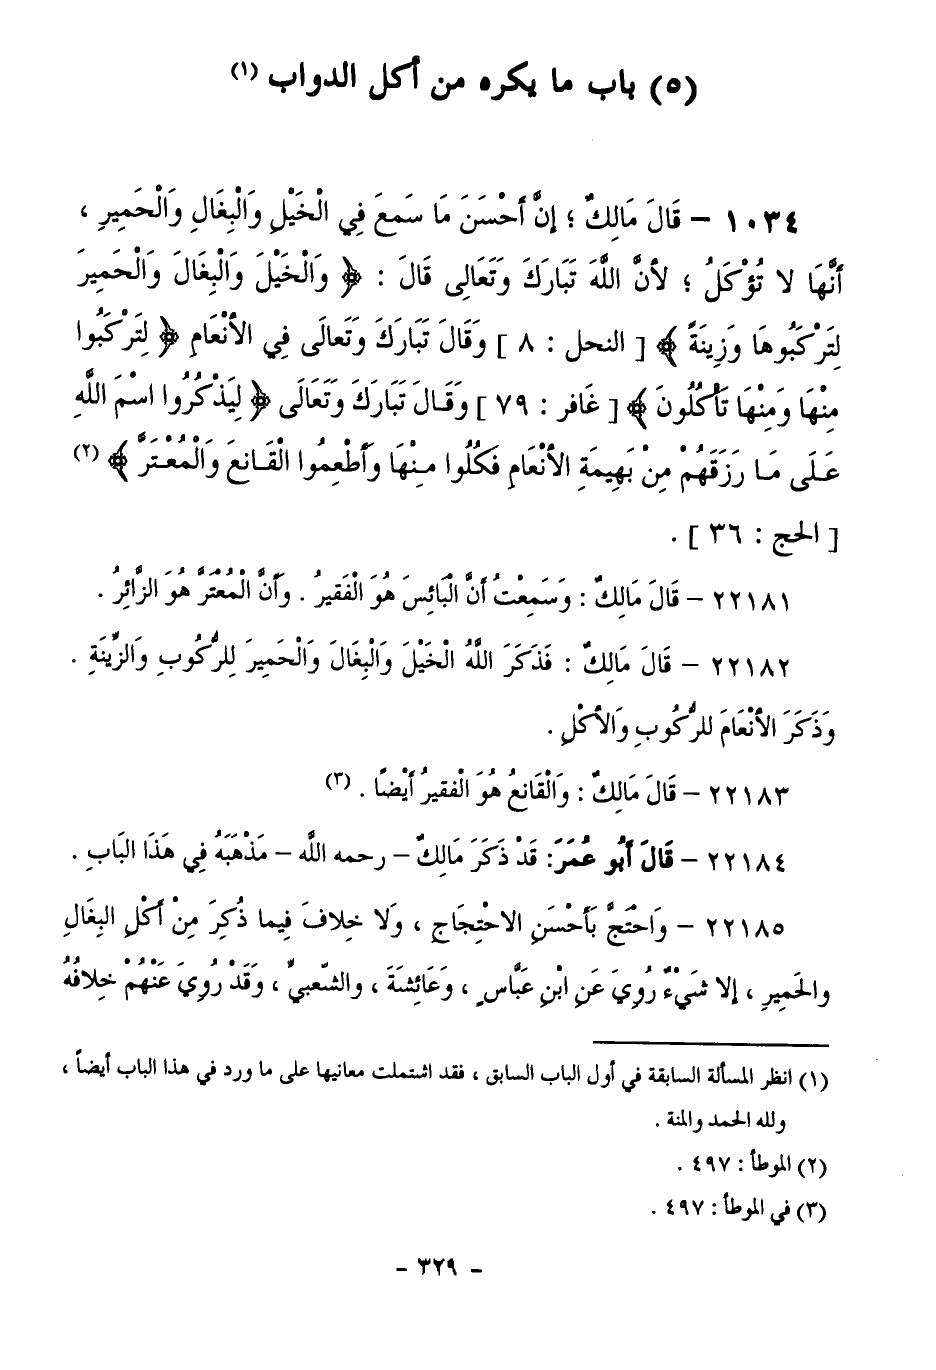 (٥) باب ما يكره من أكل الدواب (١)
١٠٣٤ – قَالَ مَالِكٌ ؛ إِنَّ أَحْسَنَ مَا سَمعَ فِي الْخَيْلِ وَالْبِغَالِ وَالْحَمِيرِ ،
أَنَّهَا لا تُؤْكَلُ ؛ لأنَّ اللَّهَ تَبَارَكَ وَتَعَالِى قَالَ : ﴿ وَالْخَيْلَ وَالْبِغَالَ وَالْحَمِيرَ
لِتَرْكَبُوهَا وَزِينَةً ﴾ [ النحل : ٨ ] وَقَالَ تَبَارَكَ وَتَعالَى فِي الأَنْعَامِ ﴿ لِتَرْكَبُوا
مِنْهَا وَمِنْهَا تَأْكُلُونَ ﴾ [ غافر : ٧٩ ] وَقَالَ تَبَارَكَ وَتَعَالَى ﴿ لِيَذْكُرُوا اسْمَ اللَّهِ
عَلَى مَا رَزَقَهُمْ مِنْ بَهِيمَةِ الأَنْعَامِ فَكُلُوا مِنْهَا وأَطْعِمُوا الْقَانِعَ وَالْمُعْتَرَّ ﴾ (٢)
[ الحج : ٣٦ ] .
٢٢١٨١ – قَالَ مَالِكٌ : وَسَمِعْتُ أَنَّ الْبَائِسَ هُوَ الْفَقِيرُ . وَأَنَّ الْمُعْتَرَّ هُوَ الزَّائِرُ .
٢٢١٨٢ – قَالَ مَالِكٌ : فَذَكَرَ اللَّهُ الْخَيْلَ وَالْبِغَالَ وَالْحَمِيرَ لِلرُّكُوبِ وَالزِّينَةِ .
وَذَكَرَ الأَنْعَامَ للرُّكُوبِ وَالأَكْلِ .
٢٢١٨٣ – قَالَ مَالِكٌ : وَالْقَانِعُ هُوَ الْفقيرُ أَيْضًا . (٣)
٢٢١٨٤ – قَالَ أَبُو عُمَرَ: قَدْ ذَكَرَ مَالِكٌ – رحمه الله – مَذْهَبَهُ فِي هَذَا البَابِ .
٢٢١٨٥ – وَاحْتَجَّ بَأَحْسَنِ الاحْتِجَاجِ ، وَلا خِلافَ فِيما ذُكِرَ مِنْ أَكْلِ البِغَالِ
والحَمِيرِ ، إلا شَيْءٌ رُوِيَ عَنِ ابْنِ عَبَّاسٍ ، وَعَائِشَةَ ، والشّعبيِّ ، وَقَدْ رُوِيَ عَنْهُمْ خِلافُهُ
(١) انظر المسألة السابقة في أول الباب السابق ، فقد اشتملت معانيها على ما ورد في هذا الباب أيضاً ،
ولله الحمد والمنة .
(٢) الموطأ : ٤٩٧ .
(٣) في الموطأ : ٤٩٧ .
– ٣٢٩ –